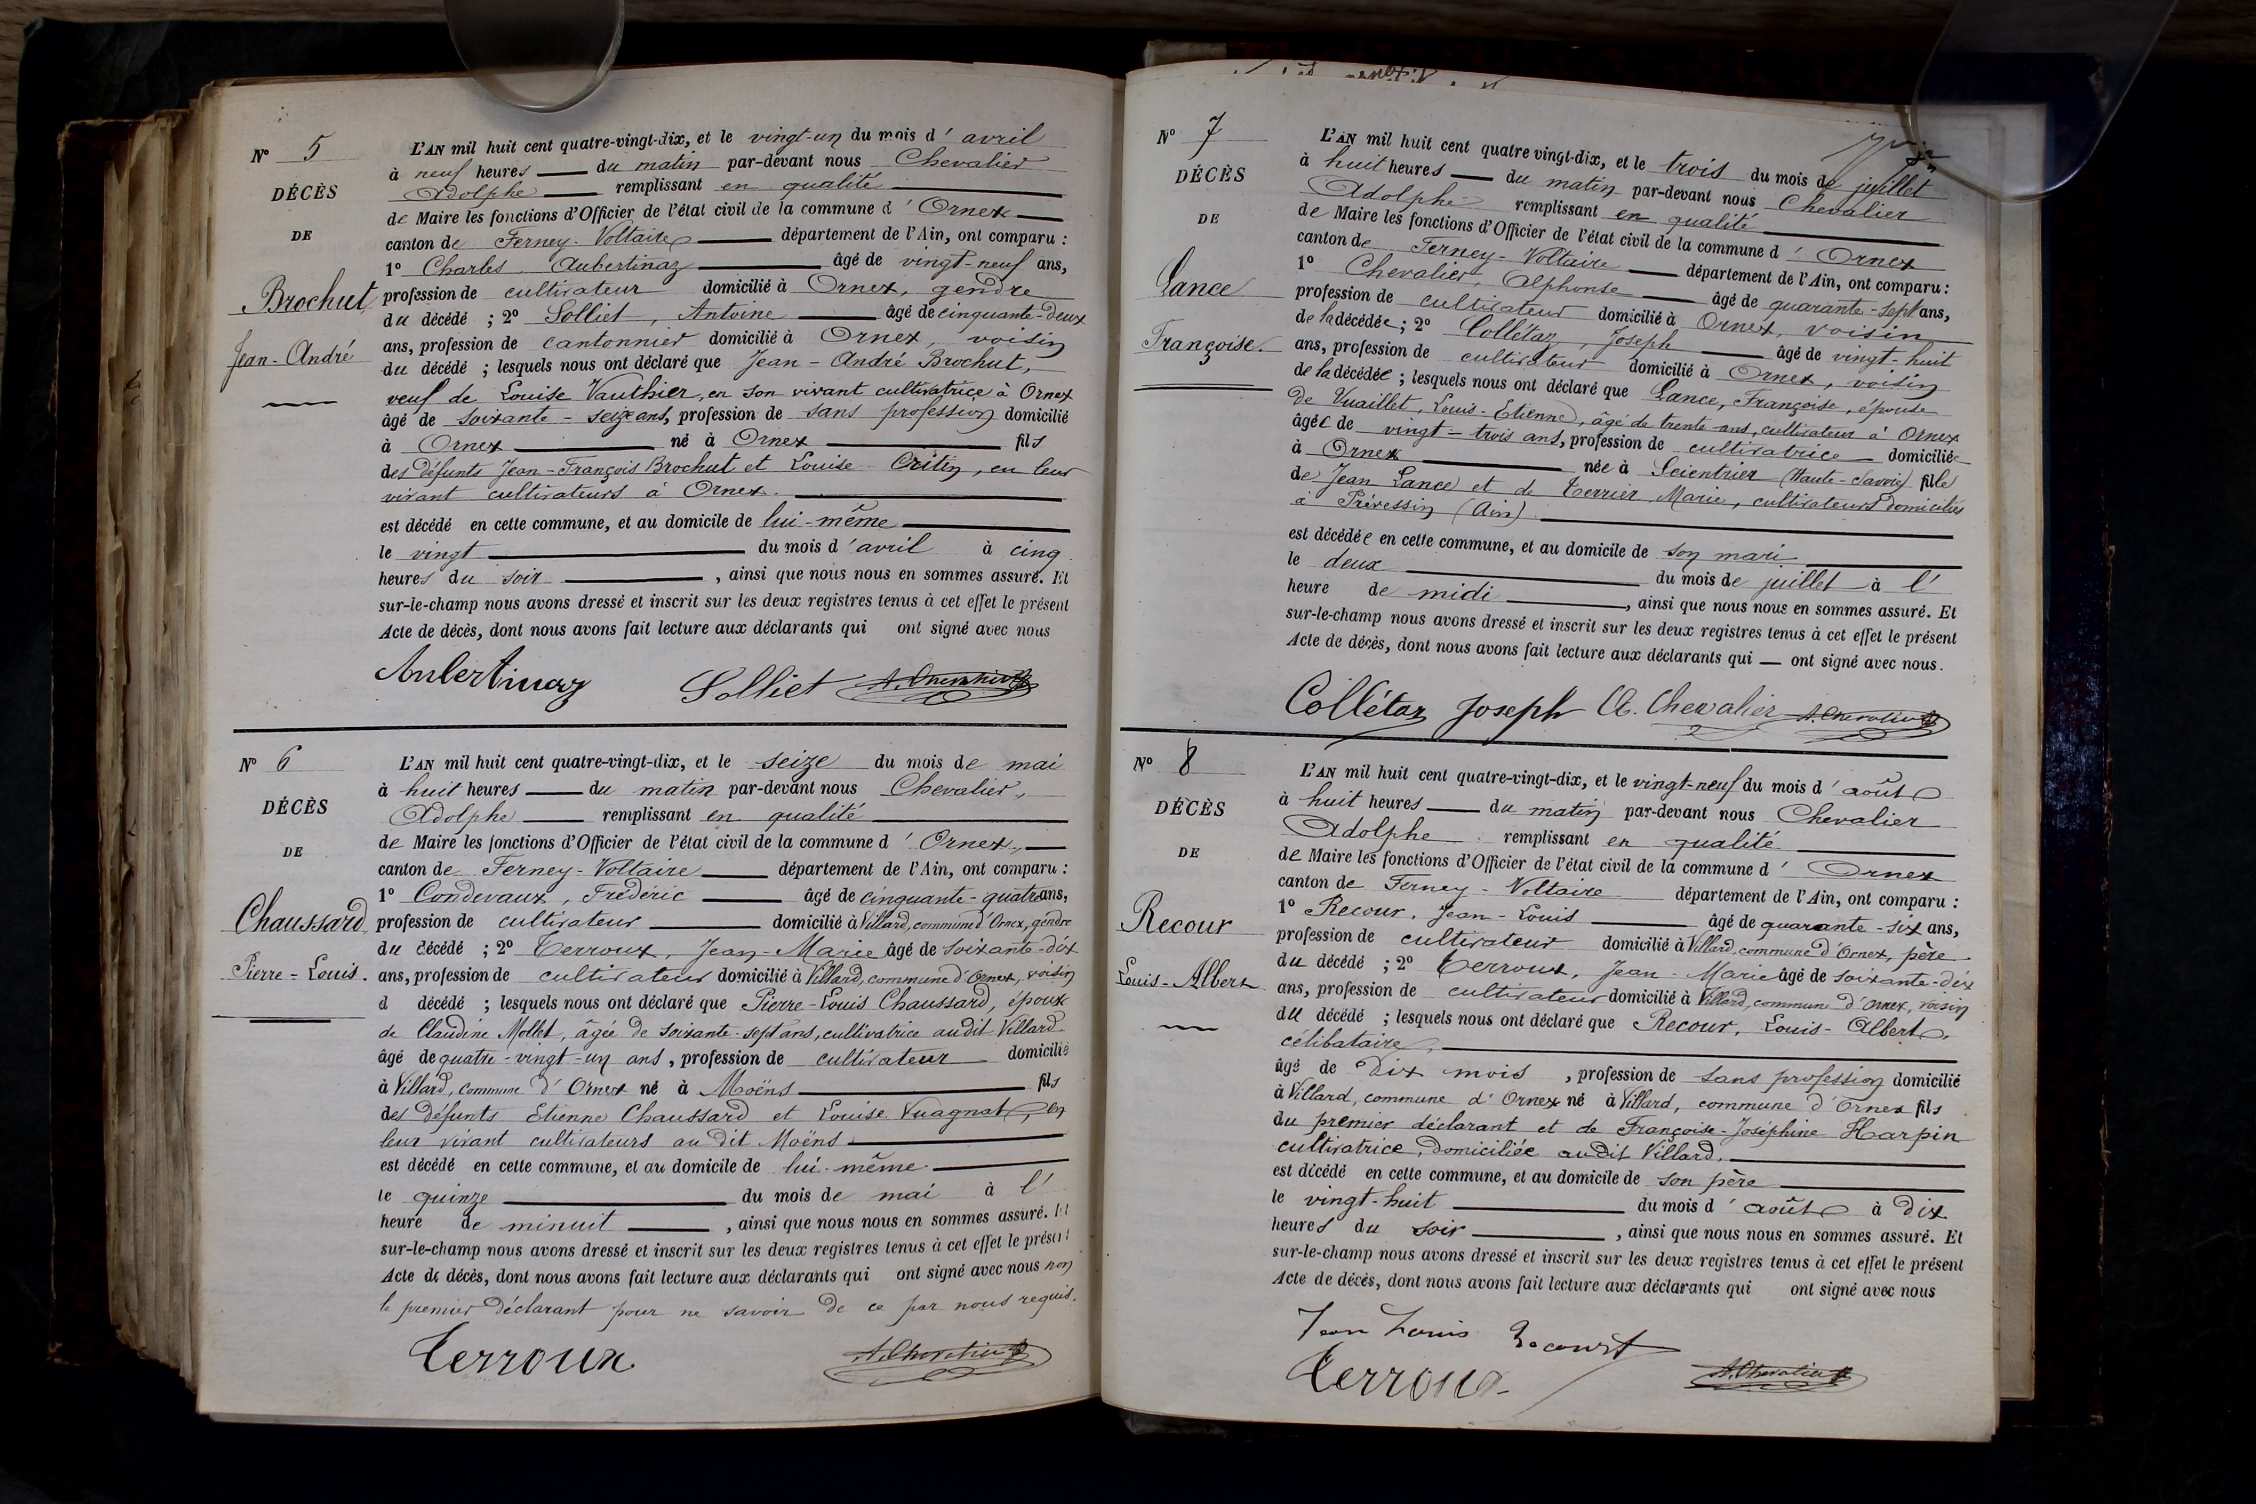 N° 5
DÉCÈS
DE
Brochut
Jean-André
L'AN mil huit cent quatre-vingt-dix, et le vingt-un du mois d'avril
à neuf heures du matin par-devant nous Chevalier
Adolphe remplissant en qualité
de Maire les fonctions d'Officier de l'état civil de la commune d'Ornex
canton de Ferney-Voltaire département de l'Ain, ont comparu :
1° Charles Aubertinaz âgé de vingt-neuf ans,
profession de cultivateur domicilié à Ornex, gendre
du décédé ; 2° Solliet, Antoine âgé de cinquante-deux
ans, profession de cantonnier domicilié à Ornex, voisin
du décédé ; lesquels nous ont déclaré que Jean-André Brochut,
veuf de Louise Vauthier, en son vivant cultivatrice à Ornex
âgé de soixante-seize ans, profession de sans profession domicilié
à Ornex né à Ornex fils
des défunts Jean-François Brochut et Louise Critin, en leur
vivant cultivateurs à Ornex.
est décédé en cette commune, et au domicile de lui-même
le vingt du mois d'avril à cinq
heures du soir, ainsi que nous nous en sommes assuré. Et
sur-le-champ nous avons dressé et inscrit sur les deux registres tenus à cet effet le présent
Acte de décès, dont nous avons fait lecture aux déclarants qui ont signé avec nous
Aubertinaz Solliet A. Chevalier
N° 6
DÉCÈS
DE
Chaussard
Pierre-Louis.
L'AN mil huit cent quatre-vingt-dix, et le seize du mois de mai
à huit heures du matin par-devant nous Chevalier,
Adolphe remplissant en qualité
de Maire les fonctions d'Officier de l'état civil de la commune d'Ornex,
canton de Ferney-Voltaire département de l'Ain, ont comparu :
1° Condevaux, Frédéric âgé de cinquante-quatre ans,
profession de cultivateur domicilié à Villard, commune d'Ornex, gendre
du décédé ; 2° Terroux, Jean-Marie âgé de soixante-dix
ans, profession de cultivateur domicilié à Villard, commune d'Ornex, voisin
d décédé ; lesquels nous ont déclaré que Pierre-Louis Chaussard, époux
de Claudine Mollet, âgée de soixante-sept ans, cultivatrice audit Villard
âgé de quatre-vingt-un ans, profession de cultivateur domicilié
à Villard, commune d'Ornex né à Moëns fils
des défunts Etienne Chaussard et Louise Vuagnat, en
leur vivant cultivateurs au dit Moëns
est décédé en cette commune, et au domicile de lui-même
le quinze du mois de mai à l'
heure de minuit, ainsi que nous nous en sommes assuré. Et
sur-le-champ nous avons dressé et inscrit sur les deux registres tenus à cet effet le présent
Acte de décès, dont nous avons fait lecture aux déclarants qui ont signé avec nous non
le premier déclarant pour ne savoir de ce par nous requis.
Terroux A. Chevalier
N° 7
DÉCÈS
DE
Lance
Françoise.
L'AN mil huit cent quatre vingt-dix, et le trois du mois de juillet
à huit heures du matin par-devant nous Chevalier
Adolphe remplissant en qualité
de Maire les fonctions d'Officier de l'état civil de la commune d'Ornex
canton de Ferney-Voltaire département de l'Ain, ont comparu :
1° Chevalier, Alphonse âgé de quarante-sept ans,
profession de cultivateur domicilié à Ornex, voisin
de la décédée ; 2° Collétaz, Joseph âgé de vingt-huit
ans, profession de cultivateur domicilié à Ornex, voisin
de la décédée ; lesquels nous ont déclaré que Lance, Françoise, épouse
de Vuaillet, Louis-Etienne, âgé de trente ans, cultivateur à Ornex
âgée de vingt-trois ans, profession de cultivatrice domiciliée
à Ornex née à Scientrier (Haute-Savoie) fille
de Jean Lance et de Terrier Marie, cultivateurs domiciliés
à Prévessin (Ain).
est décédée en cette commune, et au domicile de son mari
le deux du mois de juillet à l'
heure de midi, ainsi que nous nous en sommes assuré. Et
sur-le-champ nous avons dressé et inscrit sur les deux registres tenus à cet effet le présent
Acte de décès, dont nous avons fait lecture aux déclarants qui ont signé avec nous.
Collétaz Joseph A. Chevalier A. Chevalier
N° 8
DÉCÈS
DE
Recour
Louis-Albert
L'AN mil huit cent quatre-vingt-dix, et le vingt-neuf du mois d'août
à huit heures du matin par-devant nous Chevalier
Adolphe remplissant en qualité
de Maire les fonctions d'Officier de l'état civil de la commune d'Ornex
canton de Ferney-Voltaire département de l'Ain, ont comparu :
1° Recour, Jean-Louis âgé de quarante-six ans,
profession de cultivateur domicilié à Villard, commune d'Ornex, père
du décédé ; 2° Terroux, Jean-Marie âgé de soixante-dix
ans, profession de cultivateur domicilié à Villard, commune d'Ornex, voisin
du décédé ; lesquels nous ont déclaré que Recour, Louis-Albert,
célibataire,
âgé de dix mois, profession de sans profession domicilié
à Villard, commune d'Ornex né à Villard, commune d'Ornex fils
du premier déclarant et de Françoise-Joséphine Harpin
cultivatrice, domiciliée audit Villard.
est décédé en cette commune, et au domicile de son père
le vingt-huit du mois d'août à dix
heures du soir, ainsi que nous nous en sommes assuré. Et
sur-le-champ nous avons dressé et inscrit sur les deux registres tenus à cet effet le présent
Acte de décès, dont nous avons fait lecture aux déclarants qui ont signé avec nous
Jean Louis Recourt
Terroux A. Chevalier